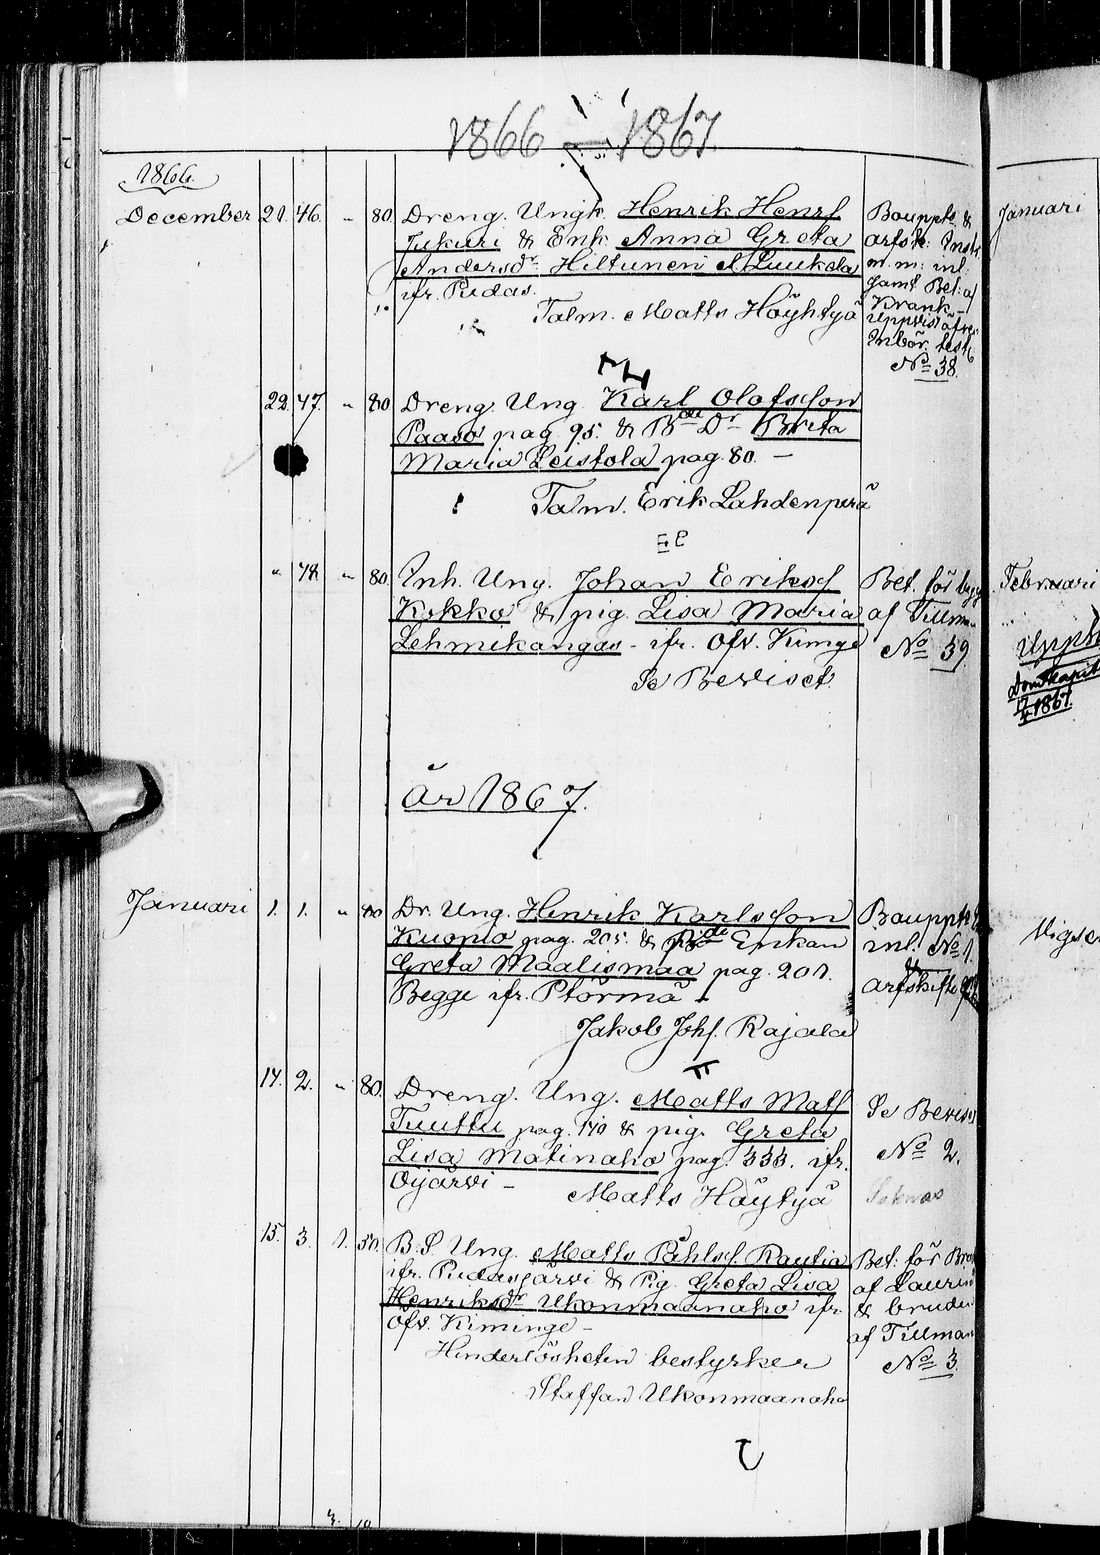 1866 — 1867.
1866.
December 21. 46. " 80. Dreng. Ungk. Henrik Henrs
Jukuri & Enk. Anna Greta
Andersdr Hiltunen el Luukela
ifr. Pudas.
Talm. Matts Höyhtyä
Bouppt. &
arfsk: Inst.
m. m: inl.
samt Bet: af
Krank-
No 38.
22. 47. " 80 Dreng. Ung. Karl Olofsson
Paaso pag. 95. & Bde Dr Brita
Maria Leistola pag. 80. —
Talm. Erik Lahdenperä
" 48. " 80. Inh. Ung. Johan Eriks
Kokko & pig. Lisa Maria
Lehmikangas - ifr. Öfv. Kiminge
Se Beviset.
Bet. för
af Tillman
No 39.
År 1867.
Januari 1. 1. " 80 Dr. Ung. Henrik Karlsson
Kuopio pag. 205. & Bde Enkan
Greta Maalismaa pag. 201.
Begge ifr.
Jakob Johs. Rajala
Bouppt
inl. No 1.
&
arfskifte
14. 2. " 80. Dreng. Ung. Matts Mats
Tuuttu pag. 140 & pig. Greta
Lisa Matinaho pag. 333. ifr.
Oijärvi —
Matts Höytyä
Se Bevis
No 2.
15. 3. 1. 50. B.S. Ung. Matts Påhls. Rautia
ifr. Pudasjärvi & Pig. Greta Lisa
Henriksdr Ukonmaanaho ifr.
Öfv. Kiminge —
Hinderlösheten bestyrker
Staffan Ukonmaanaho
Bet. för
af Laurin
& bruden
af Tillman
No 3
Januari
Februari
Domkapit
1867.